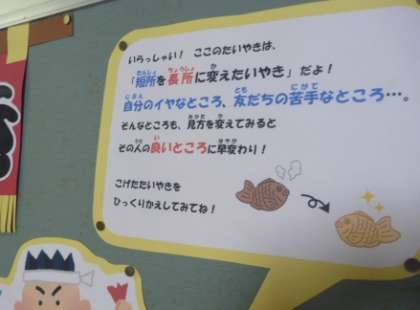 いらっしゃい！ ここのたいやきは、
「短所を長所に変えたいやき」だよ！
自分のイヤなところ、友だちの苦手なところ…。
そんなところも、見方を変えてみると
その人の良いところに早変わり！
こげたたいやきを
ひっくりかえしてみてね！